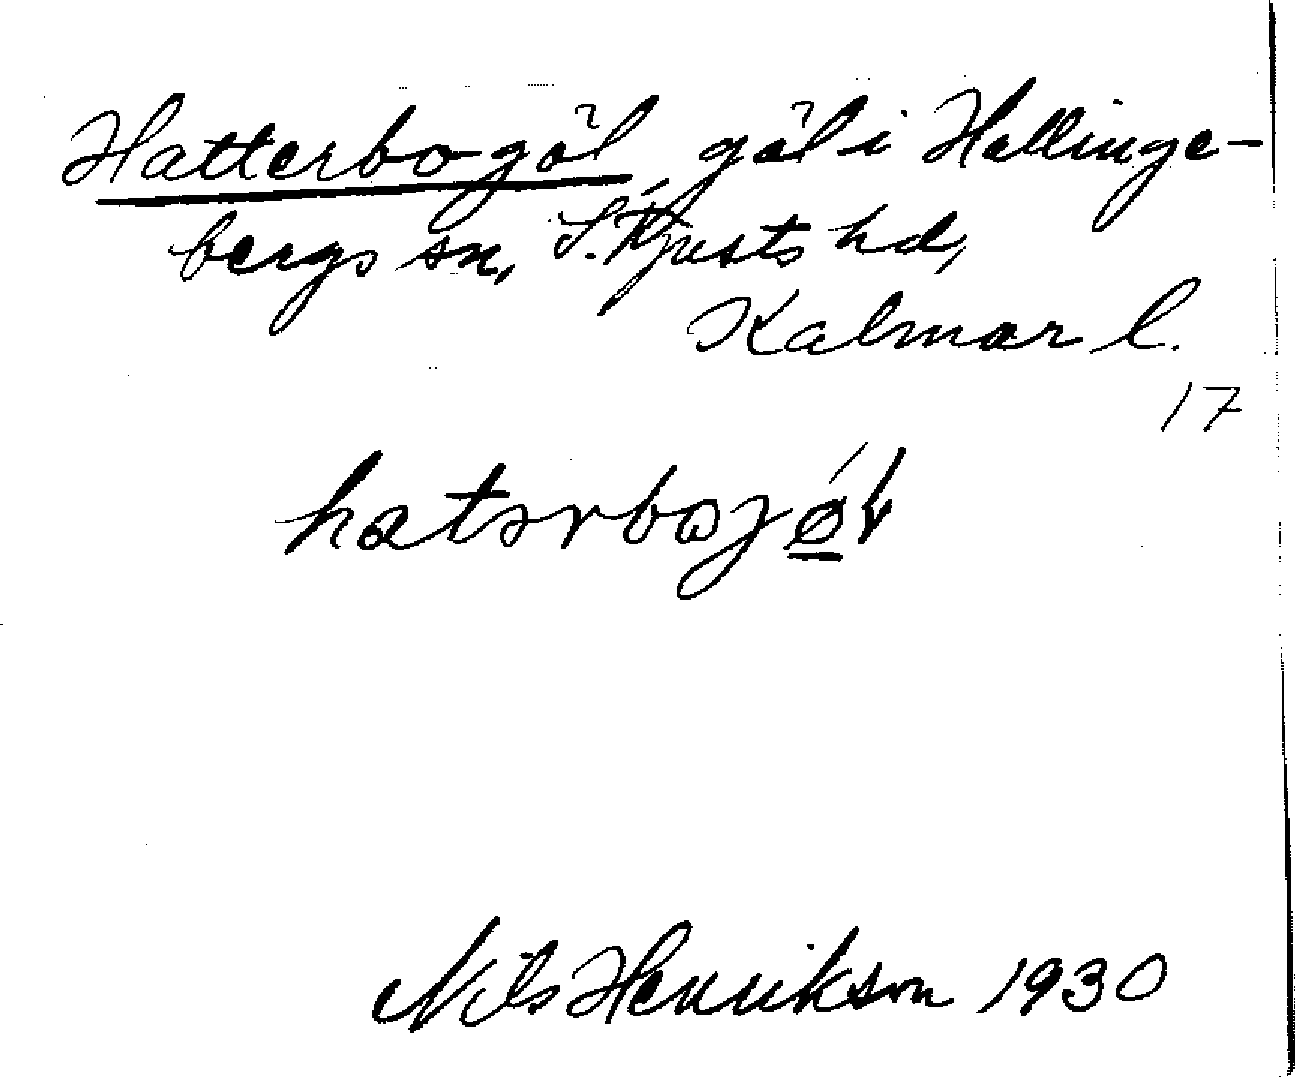 Hatterbogöl, göl i Hallinge-
bergs sn, S. Tjusts hd,
Kalmar l.
17
hatərbojǿ̲ɫ
Nils Henrikson 1930